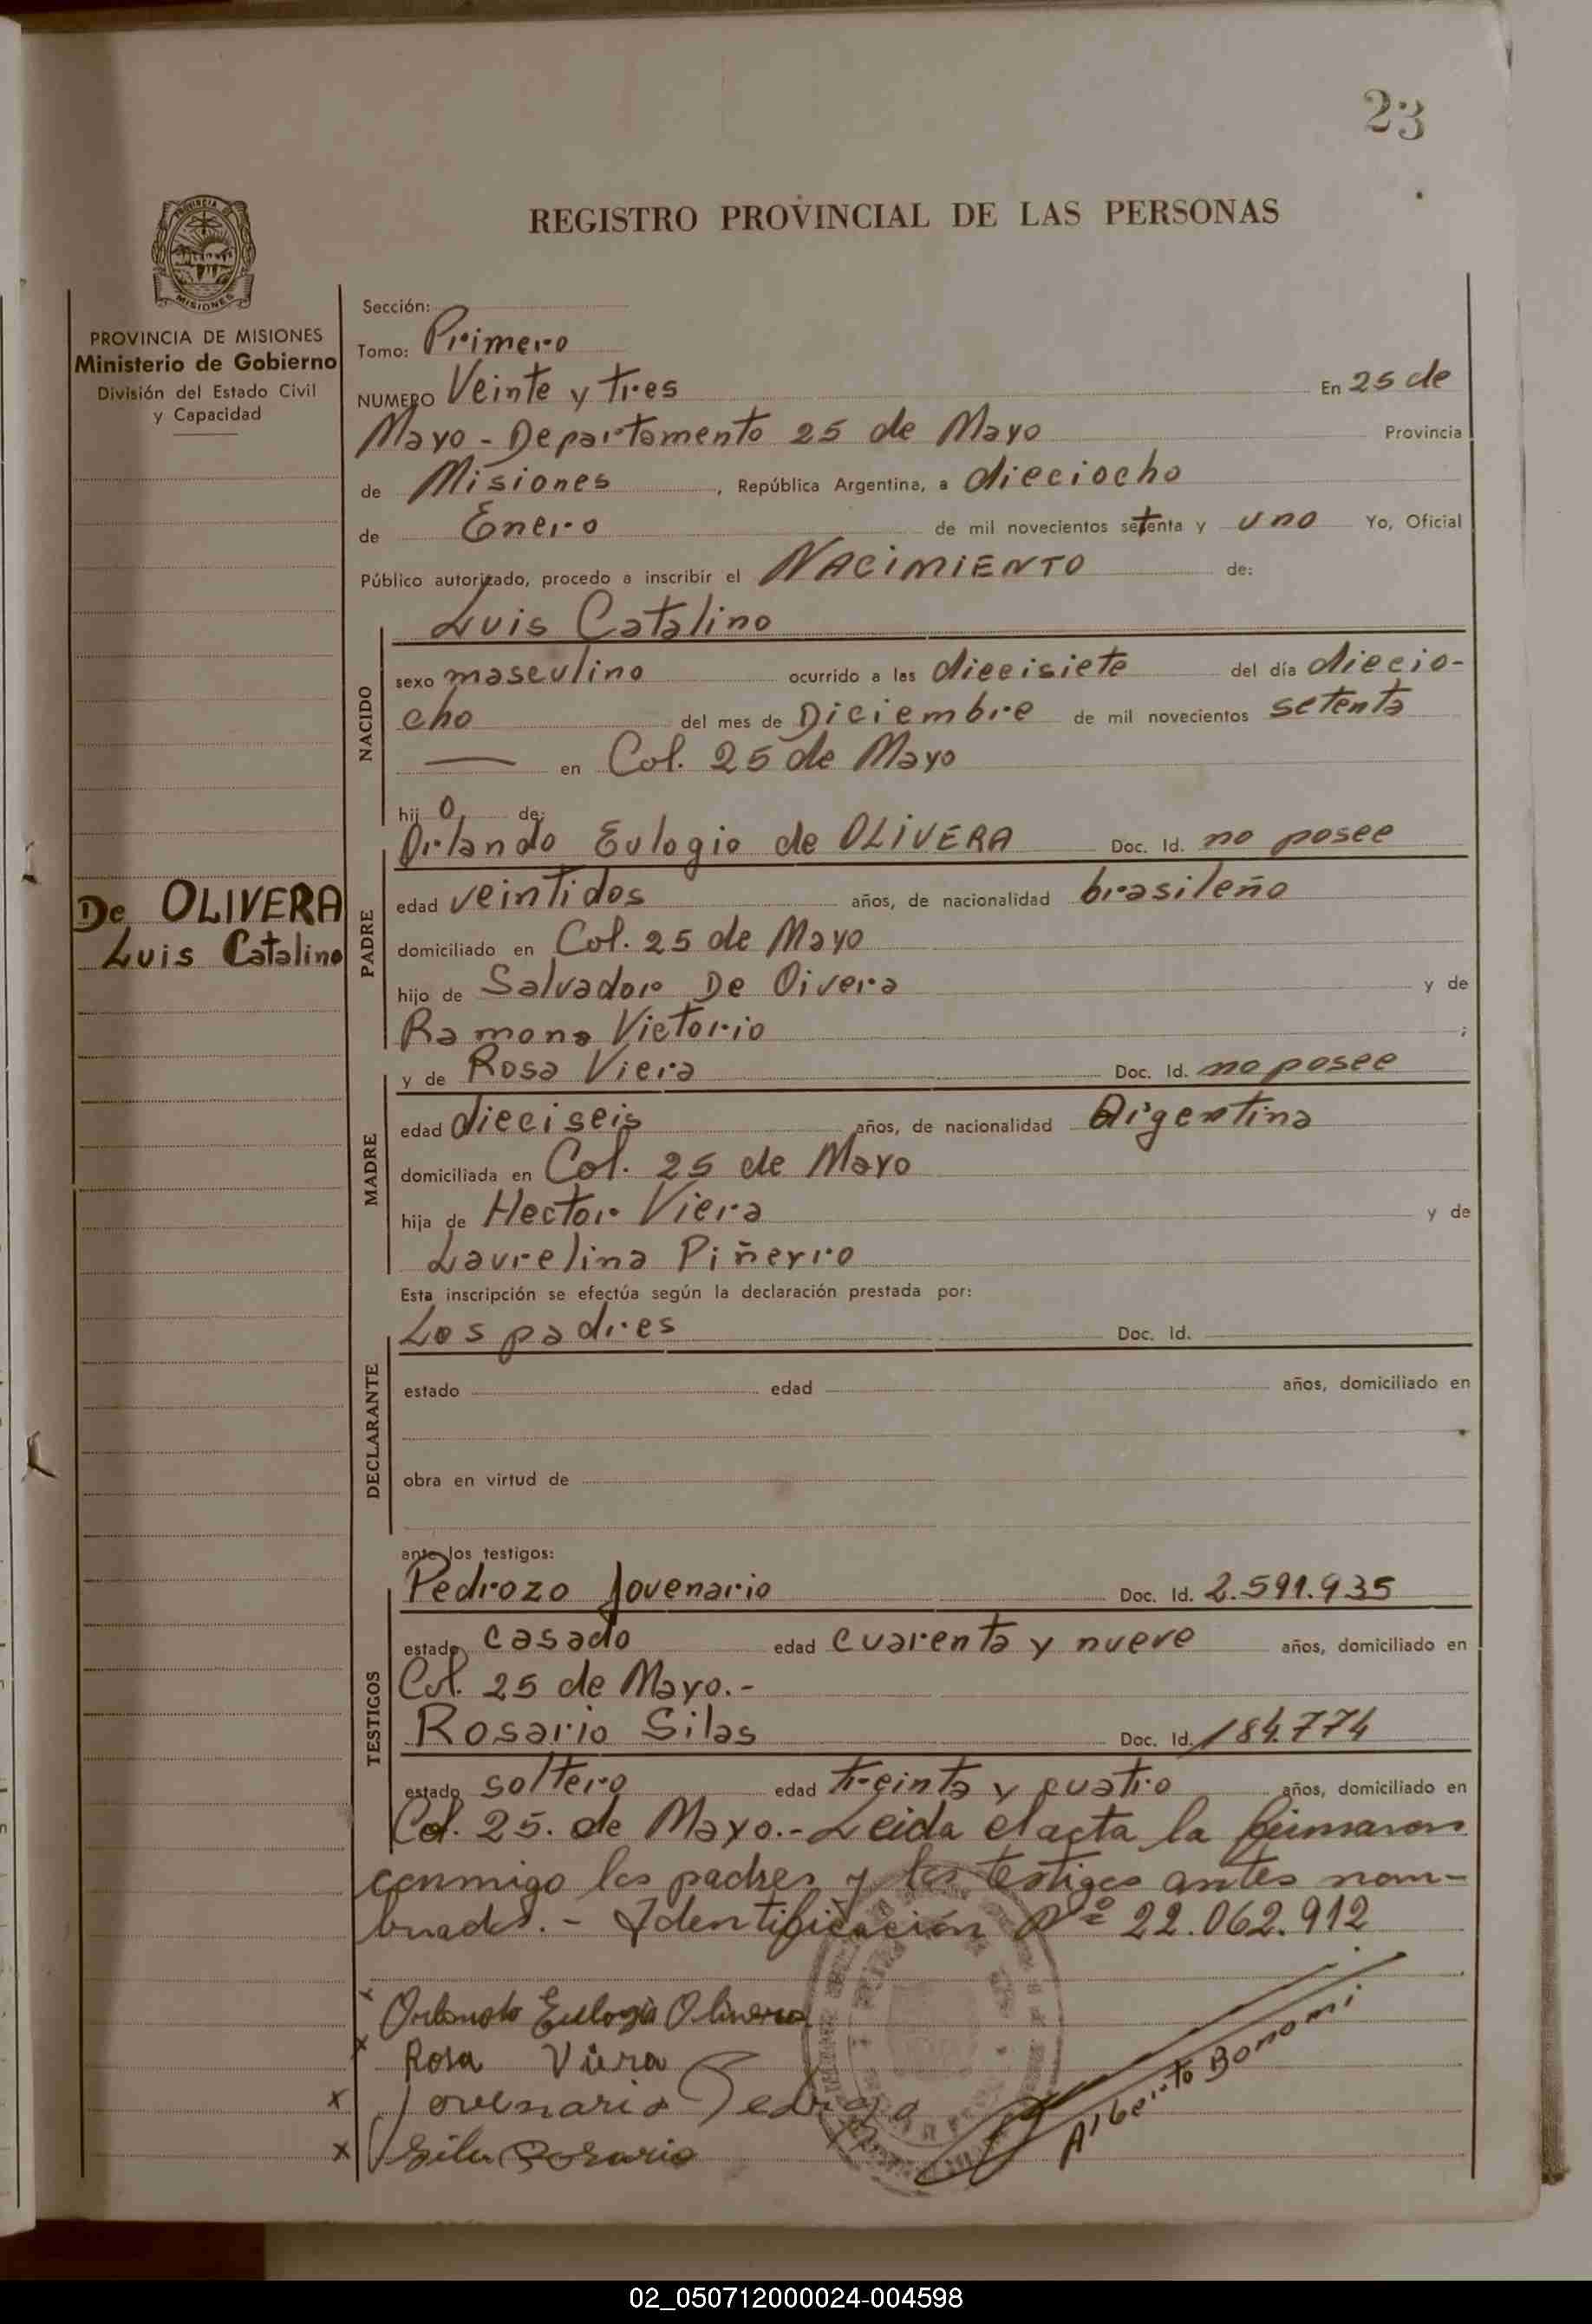 23
REGISTRO PROVINCIAL DE LAS PERSONAS
PROVINCIA DE MISIONES
Ministerio de Gobierno
División del Estado Civil
y Capacidad
Sección:
Tomo: Primero
NUMERO Veinte y tres En 25 de
Mayo - Departamento 25 de Mayo Provincia
de Misiones, República Argentina, a dieciocho
de Enero de mil novecientos setenta y uno Yo, Oficial
Público autorizado, procedo a inscribir el NACIMIENTO de:
Luis Catalino
NACIDO
sexo masculino ocurrido a las diecisiete del día diecio-
cho del mes de Diciembre de mil novecientos setenta
— en Col. 25 de Mayo
hij o de:
Orlando Eulogio de OLIVERA Doc. Id. no posee
De OLIVERA
Luis Catalino
PADRE
edad veintidos años, de nacionalidad brasileño
domiciliado en Col. 25 de Mayo
hijo de Salvador De Oivera y de
Ramona Victorio ;
y de Rosa Viera Doc. Id. no posee
MADRE
edad dieciseis años, de nacionalidad Argentina
domiciliada en Col. 25 de Mayo
hija de Hector Viera y de
Laurelina Piñeyro
Esta inscripción se efectúa según la declaración prestada por:
Los padres Doc. Id.
DECLARANTE
estado edad años, domiciliado en
obra en virtud de
ante los testigos:
Pedrozo Jovenario Doc. Id. 2.591.935
TESTIGOS
estado casado edad cuarenta y nueve años, domiciliado en
Col. 25 de Mayo.-
Rosario Silas Doc. Id. 184.774
estado soltero edad treinta y cuatro años, domiciliado en
Col. 25. de Mayo.- Leida el acta la firmaron
conmigo los padres y los testigos antes nom-
brados.- Identificación Nº 22.062.912
Orlando Eulogio Olivera
x Rosa Viera
x Jovenario Pedrozo
x Silas Rosario
Alberto Bonomi
02_050712000024-004598